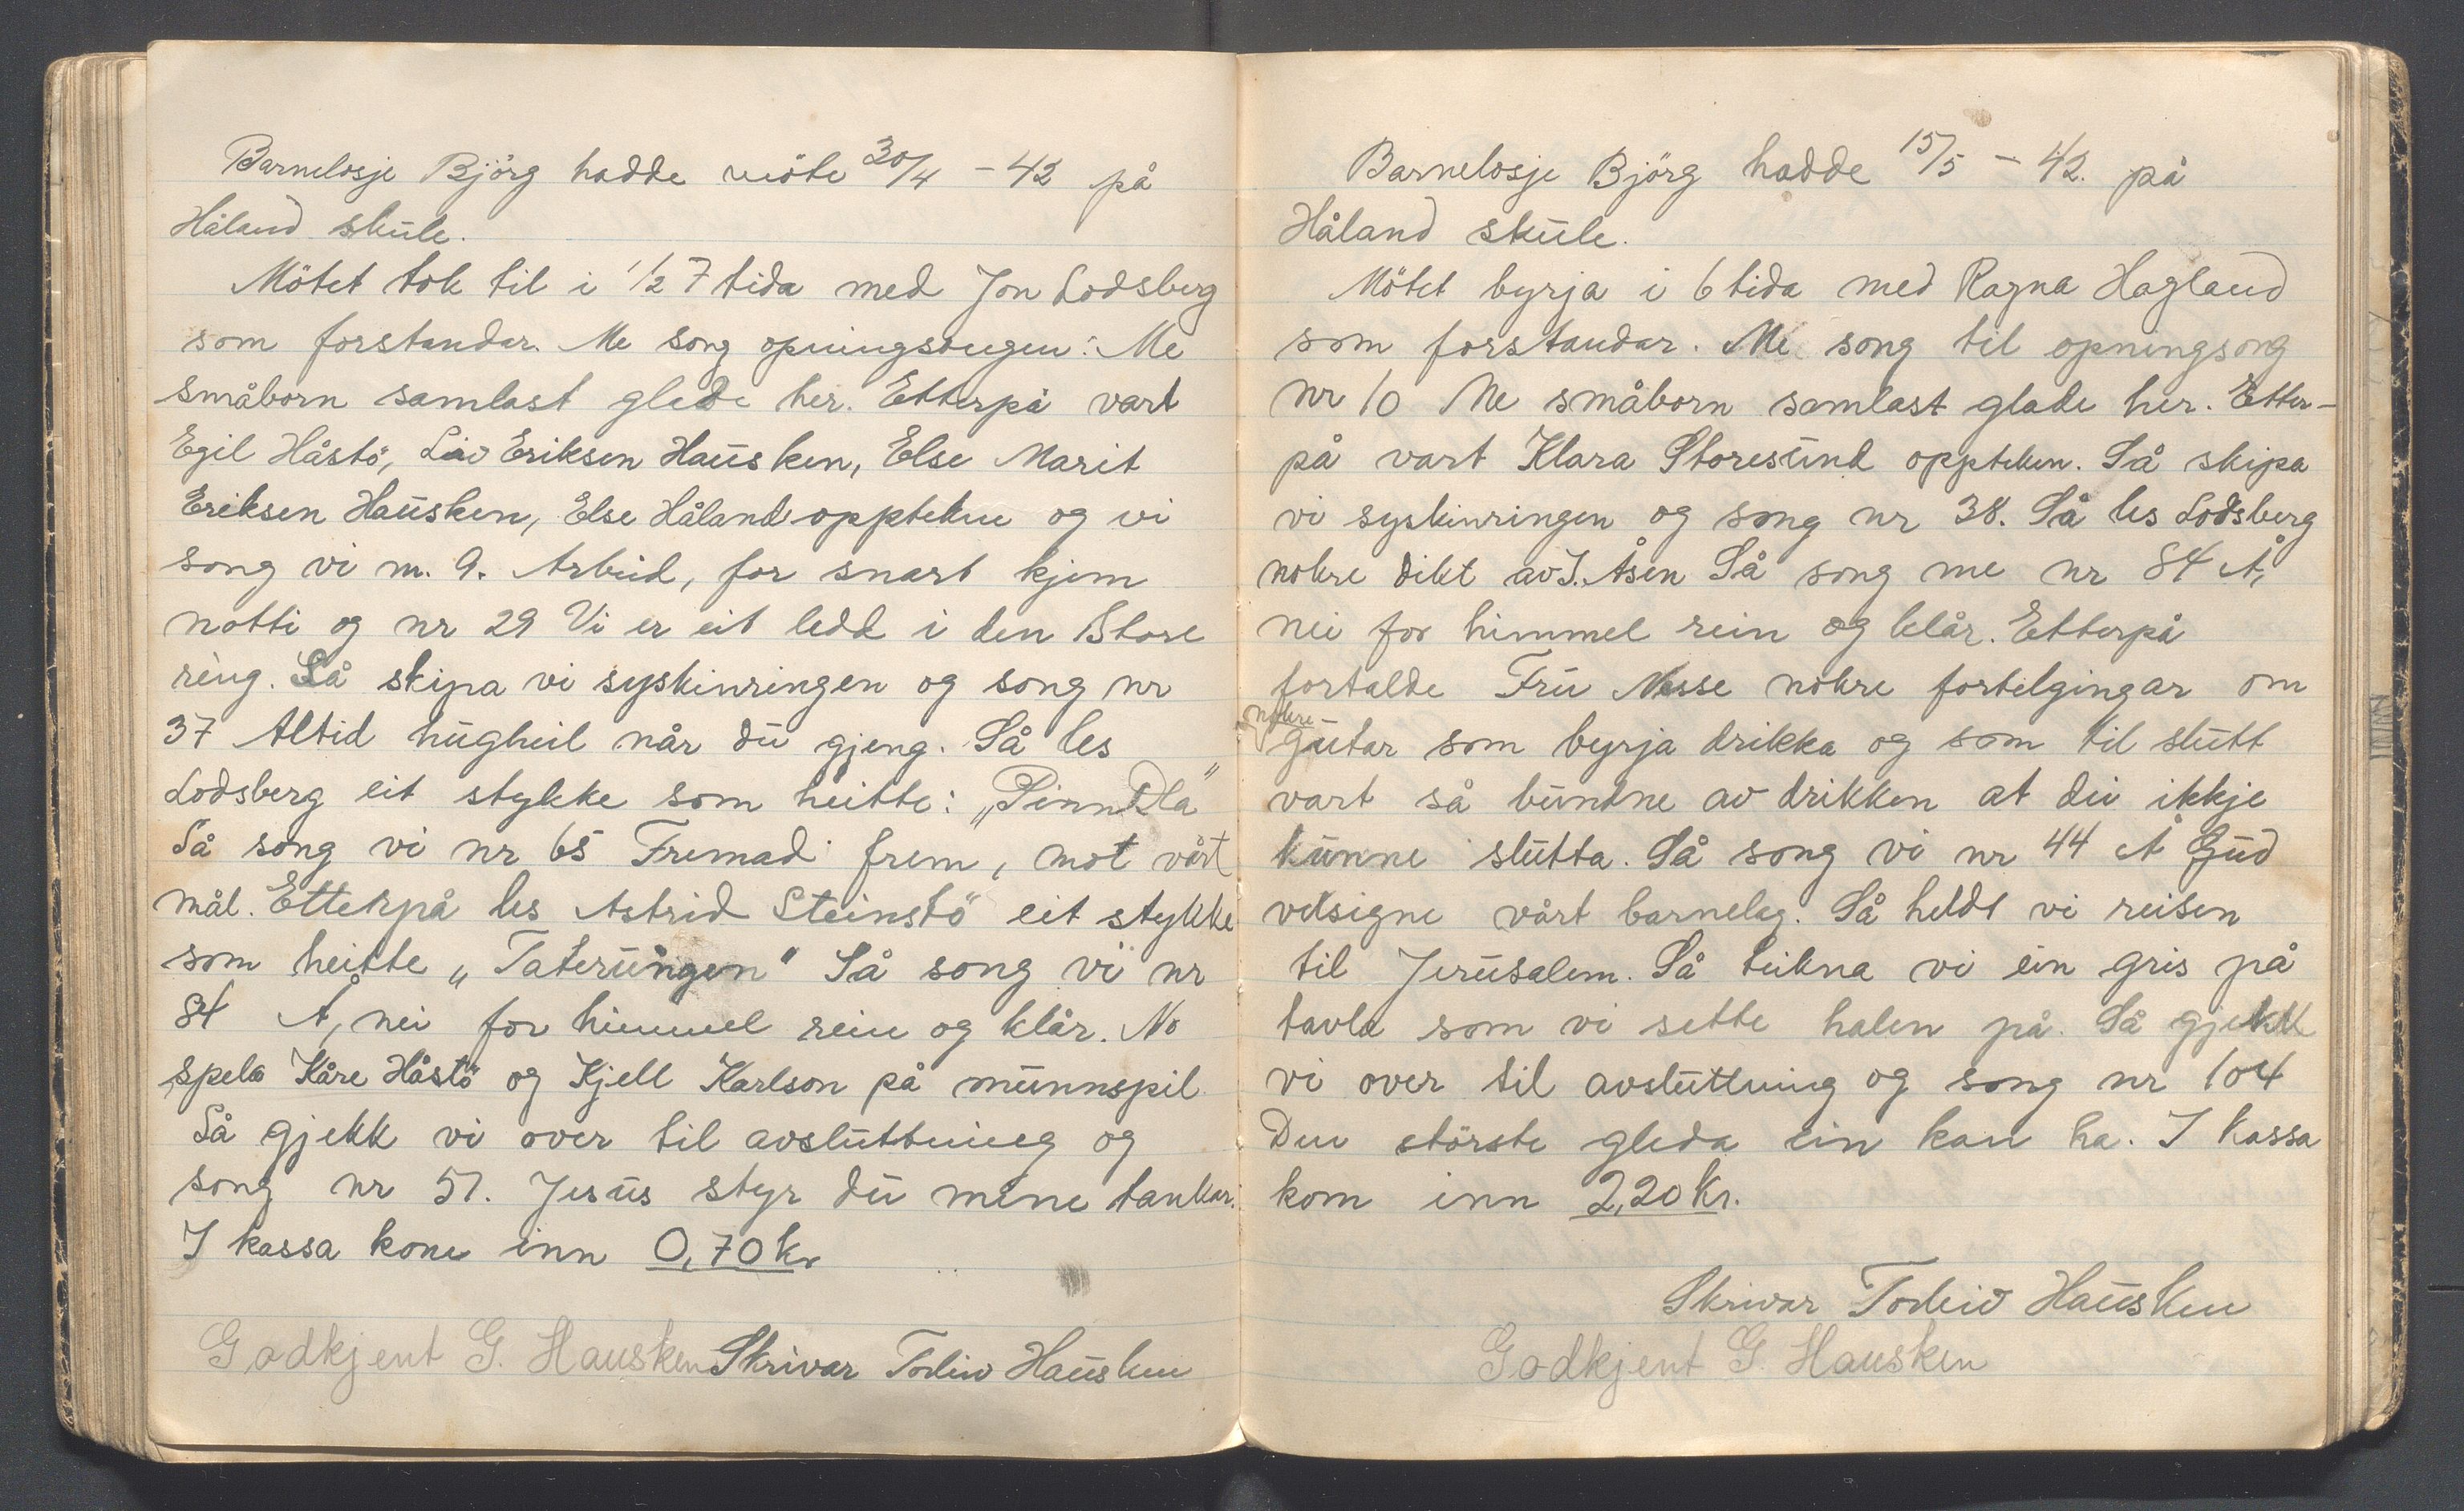 Barnelosje Björg hadde möte 30/4 - 42 på
Håland skule.
Mötet tok til i 1/2 7 tida med Jon Lodsberg
som forstandar. Me song opningsongen: Me
småborn samlast glade her. Etterpå vart
Egil Håstö, Liv Eriksen Hausken, Else Marit
Eriksen Hausken, Else Håland opptekne og vi
song vi nr. 9. Arbeid, for snart kjem
notti og nr 29 Vi er eit ledd i den Store
ring. Så skipa vi syskinringen og song nr
37 Altid hugheil når du gjeng. Så les
Lodsberg eit stykke som heitte: „Pinn Ola"
Så song vi nr 65 Fremad frem, mot vårt
mål. Etterpå les Astrid Steinstö eit stykke
som heitte „Taterungen" Så song vi nr
84 Å, nei for himmel rein og klår. No
spela Kåre Håstö og Kjell Karlson på munnspil
Så gjekk vi over til avsluttning og
song nr 51. Jesus styr du mine tankar.
I kassa kom inn 0,70 kr
Godkjent G. Hausken Skrivar Torleiv Hausken
Barnelosje Björg hadde 15/5 - 42. på
Håland skule.
Mötet byrja i 6 tida med Ragna Hagland
som forstandar. Me song til opningsong
nr 10 Me småborn samlast glade her. Etter-
på vart Klara Storesund oppteken. Så skipa
vi syskinringen og song nr 38. Så les Lodsberg
nokre dikt av I. Åsen Så song me nr 84 Å,
nei for himmel rein og klår. Etterpå
fortalde Fru Nesse nokre fortelgingar om
nokre
gutar som byrja drikka og som til slutt
vart så bundne av drikken at dei ikkje
kunne slutta. Så song vi nr 44 Å Gud
velsigne vårt barnelag. Så heldt vi reisen
til Jerusalem. Så teikna vi ein gris på
tavla som vi sette halen på. Så gjekk
vi over til avsluttning og song nr 104
Den störste gleda ein kan ha. I kassa
kom inn 2,20 Kr.
Skrivar Torleiv Hausken
Godkjent G. Hausken